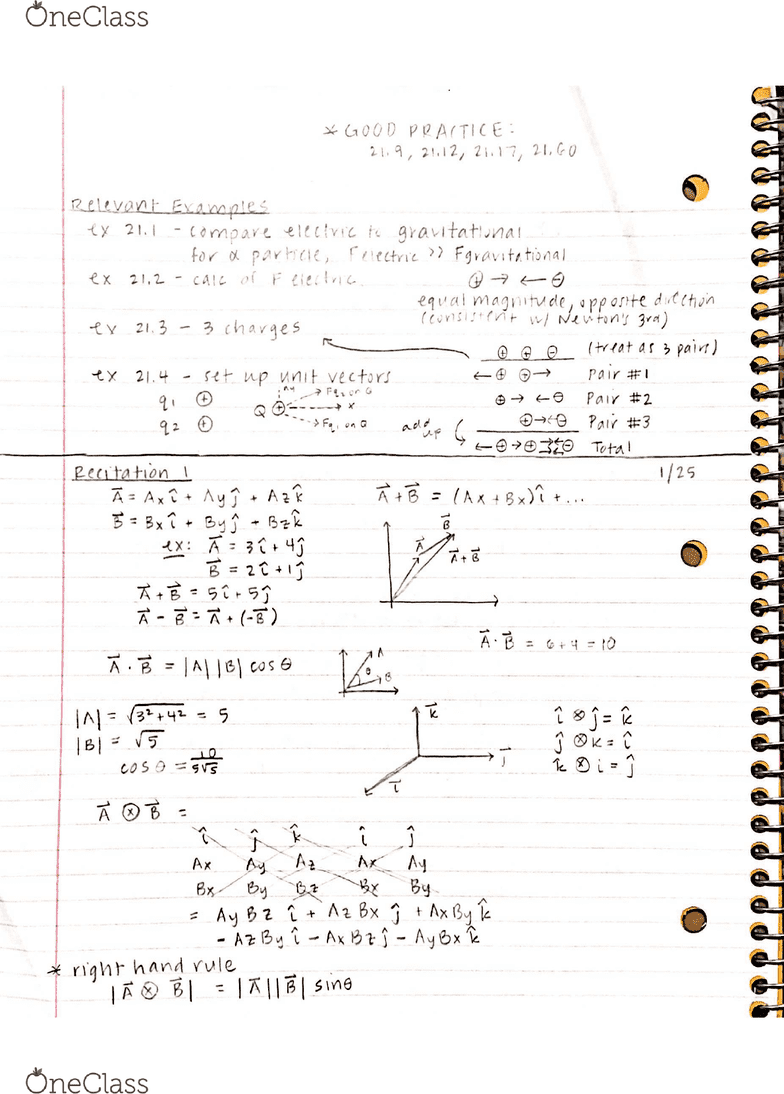 OneClass
* GOOD PRACTICE:
21.9, 21.12, 21.17, 21.60
Relevant Examples
ex 21.1 - compare electric to gravitational
for α particle, Felectric >> Fgravitational
ex 21.2 - calc of F electric
⊕ → ← ⊖
equal magnitude, opposite direction
(consistent w/ Newton's 3rd)
ex 21.3 - 3 charges
⊕ ⊕ ⊖ (treat as 3 pairs)
ex 21.4 - set up unit vectors
← ⊕ ⊕ → Pair #1
q1 ⊕
Q ⊕
Fq2 on Q
x
Fq1 on Q
⊕ → ← ⊖ Pair #2
q2 ⊕
add up
⊕ → ← ⊖ Pair #3
Total
Recitation 1
1/25
A⃗ = Ax î + Ay ĵ + Az k̂
A⃗ + B⃗ = (Ax + Bx) î + ...
B⃗ = Bx î + By ĵ + Bz k̂
ex: A⃗ = 3î + 4ĵ
B⃗ = 2î + 1ĵ
B⃗
A⃗
A⃗ + B⃗
A⃗ + B⃗ = 5î + 5ĵ
A⃗ - B⃗ = A⃗ + (-B⃗)
A⃗ · B⃗ = 6 + 4 = 10
A⃗ · B⃗ = |A| |B| cos θ
A
θ
B
|A| = √3² + 4² = 5
|B| = √5
cos θ = 10/5√5
k⃗
j⃗
i⃗
î ⊗ ĵ = k̂
ĵ ⊗ k = î
k̂ ⊗ i = ĵ
A⃗ ⊗ B⃗ =
î ĵ k̂ î ĵ
Ax Ay Az Ax Ay
Bx By Bz Bx By
= Ay Bz î + Az Bx ĵ + Ax By k̂
- Az By î - Ax Bz ĵ - Ay Bx k̂
* right hand rule
|A⃗ ⊗ B⃗| = |A⃗| |B⃗| sinθ
OneClass